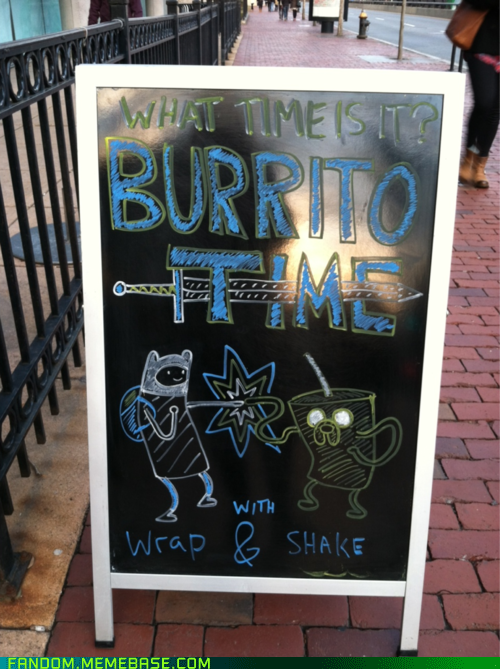 WHAT TIME IS IT?
BURRITO
TIME
WITH
Wrap & SHAKE
FANDOM.MEMEBASE.COM